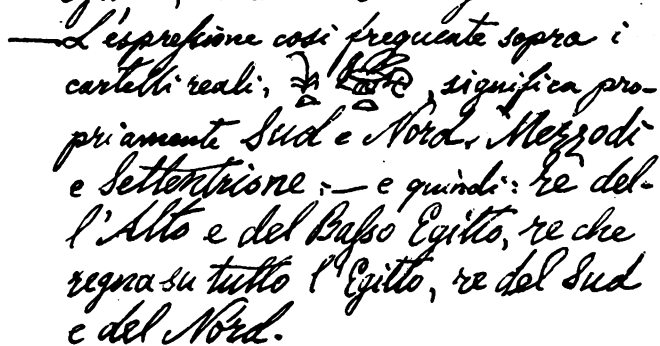 — L'espressione così frequente sopra i
cartelli reali, 𓇓𓏏 𓆤𓏏, significa pro-
priamente Sud e Nord, Mezzodì
e Settentrione; — e quindi: re del-
l'Alto e del Basso Egitto, re che
regna su tutto l'Egitto, re del Sud
e del Nord.